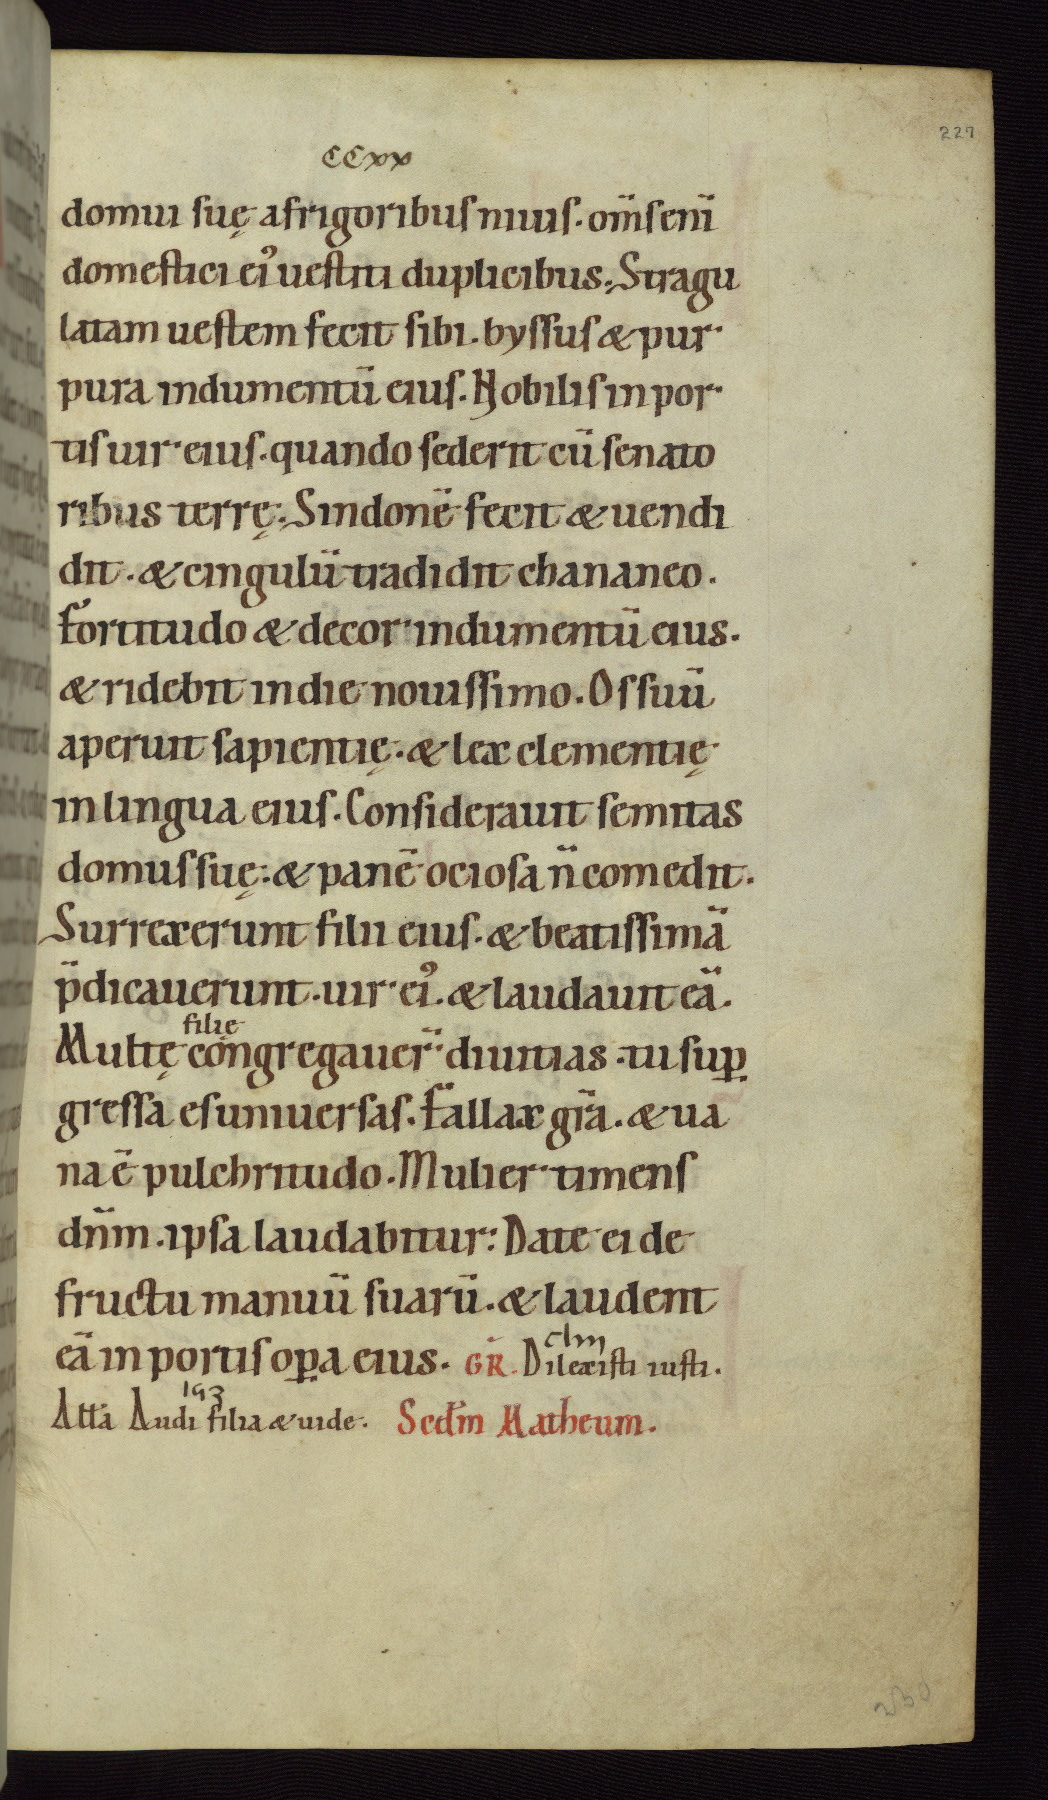 227
CCxx
domui suę afrigoribus niuis. om̅s eni̅
domestici ei᾽ uestiti duplicibus. Stragu
latam uestem fecit sibi. byssus & pur
pura indumentu̅ eius. Nobilis in por
tis uir eius. quando sederit cu̅ senato
ribus terrę. Sindone̅ fecit & uendi
dit. & cingulu̅ tradidit chananeo.
Fortitudo & decor indumentu̅ eius.
& ridebit in die nouissimo. Os suu̅
aperuit sapientię. & lex clementię
in lingua eius. Considerauit semitas
domus suę. & pane̅ ociosa n̅ comedit.
Surrexerunt filii eius. & beatissima̅
p̅dicauerunt. uir ei᾽. & laudauit ea̅.
filię
Multę congregauer̅ diuitias. tu sup̲
gressa es uniuersas. Fallax gr̅a. & ua
na e̅ pulchritudo. Mulier timens
dn̅m. ipsa laudabitur. Date ei de
fructu manuu̅ suaru̅. & laudent
ea̅ in portis op̲a eius. GR. Dilexisti iusti.
Atta Audi filia & uide. Scd̅m Matheum.
230